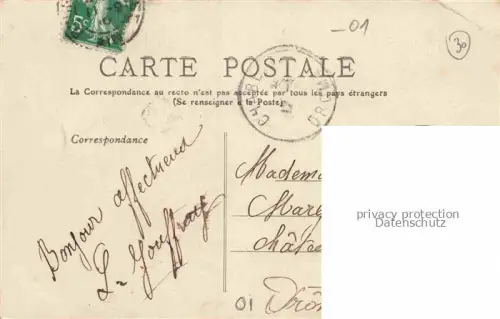 -01
30
5c
CARTE POSTALE
La Correspondance au recto n'est pas acceptée par tous les pays étrangers
(Se renseigner à la Poste)
Correspondance
Bonjour affectueux
L. Jouffray
Madem
Mary
châte
Drô
01
privacy protection
Datenschutz